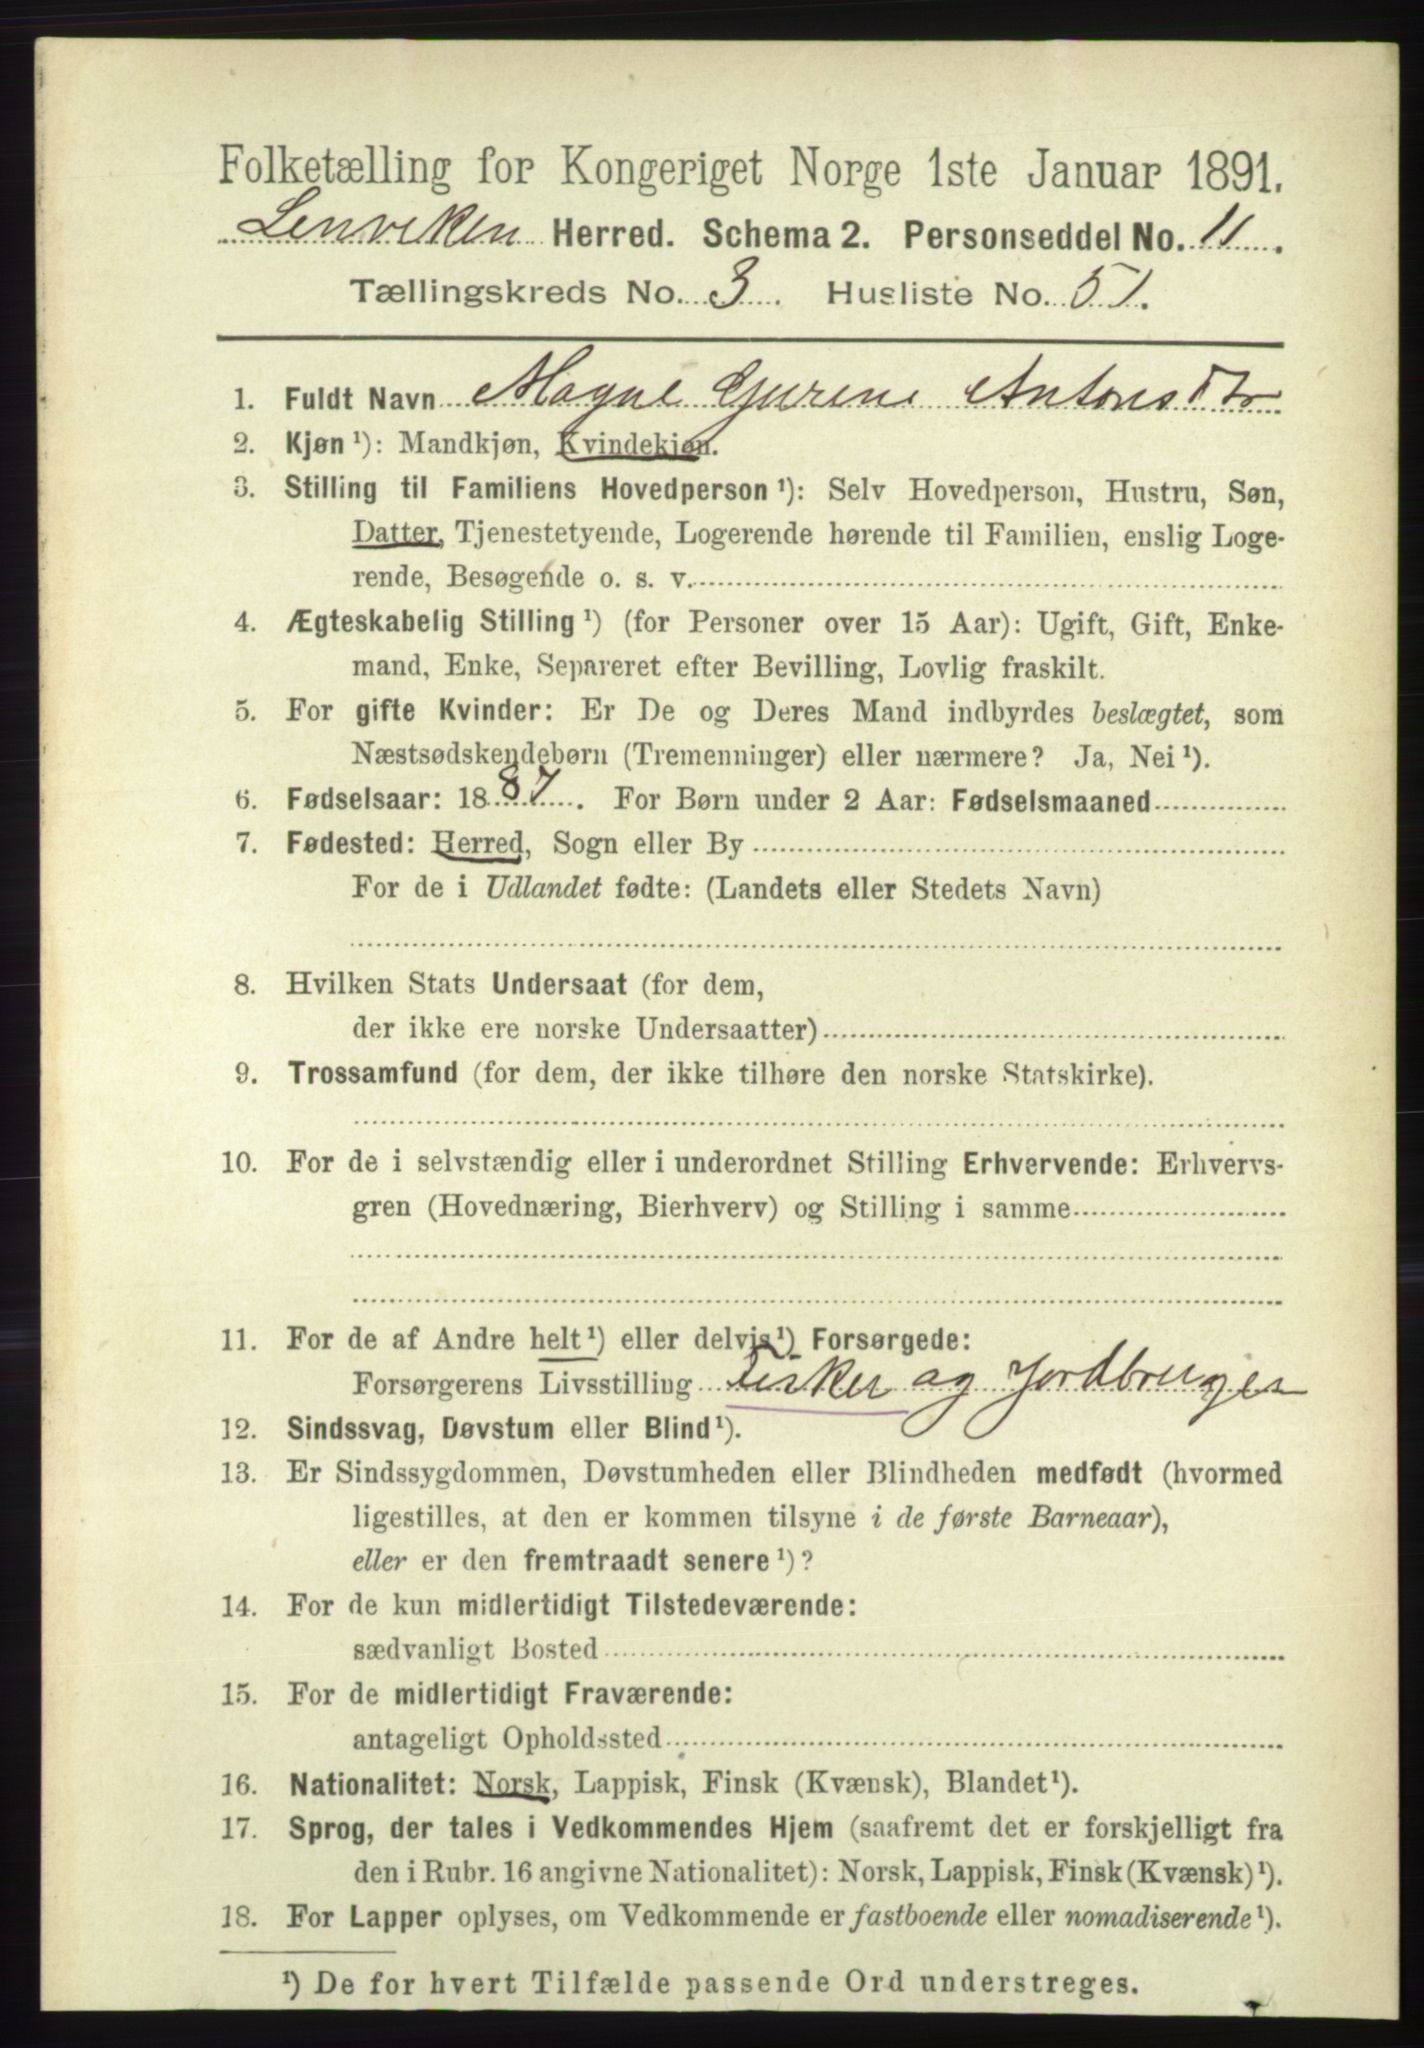 Folketælling for Kongeriget Norge 1ste Januar 1891.
Lenviken Herred. Schema 2. Personseddel No. 11.
Tællingskreds No. 3. Husliste No. 51.
1. Fuldt Navn Magne Gjurine Antonsdtr
2. Kjøn ¹): Mandkjøn, Kvindekjøn.
3. Stilling til Familiens Hovedperson ¹): Selv Hovedperson, Hustru, Søn,
Datter, Tjenestetyende, Logerende hørende til Familien, enslig Loge-
rende, Besøgende o. s. v.
4. Ægteskabelig Stilling ¹) (for Personer over 15 Aar): Ugift, Gift, Enke-
mand, Enke, Separeret efter Bevilling, Lovlig fraskilt.
5. For gifte Kvinder: Er De og Deres Mand indbyrdes beslægtet, som
Næstsødskendebørn (Tremenninger) eller nærmere? Ja, Nei ¹).
6. Fødselsaar: 1887. For Børn under 2 Aar: Fødselsmaaned
7. Fødested: Herred, Sogn eller By
For de i Udlandet fødte: (Landets eller Stedets Navn)
8. Hvilken Stats Undersaat (for dem,
der ikke ere norske Undersaatter)
9. Trossamfund (for dem, der ikke tilhøre den norske Statskirke).
10. For de i selvstændig eller i underordnet Stilling Erhvervende: Erhvervs-
gren (Hovednæring, Bierhverv) og Stilling i samme
11. For de af Andre helt ¹) eller delvis ¹) Forsørgede:
Forsørgerens Livsstilling Fisker og Jordbruger
12. Sindssvag, Døvstum eller Blind ¹).
13. Er Sindssygdommen, Døvstumheden eller Blindheden medfødt (hvormed
ligestilles, at den er kommen tilsyne i de første Barneaar),
eller er den fremtraadt senere ¹)?
14. For de kun midlertidigt Tilstedeværende:
sædvanligt Bosted
15. For de midlertidigt Fraværende:
antageligt Opholdssted
16. Nationalitet: Norsk, Lappisk, Finsk (Kvænsk), Blandet ¹).
17. Sprog, der tales i Vedkommendes Hjem (saafremt det er forskjelligt fra
den i Rubr. 16 angivne Nationalitet): Norsk, Lappisk, Finsk (Kvænsk) ¹).
18. For Lapper oplyses, om Vedkommende er fastboende eller nomadiserende ¹).
¹) De for hvert Tilfælde passende Ord understreges.